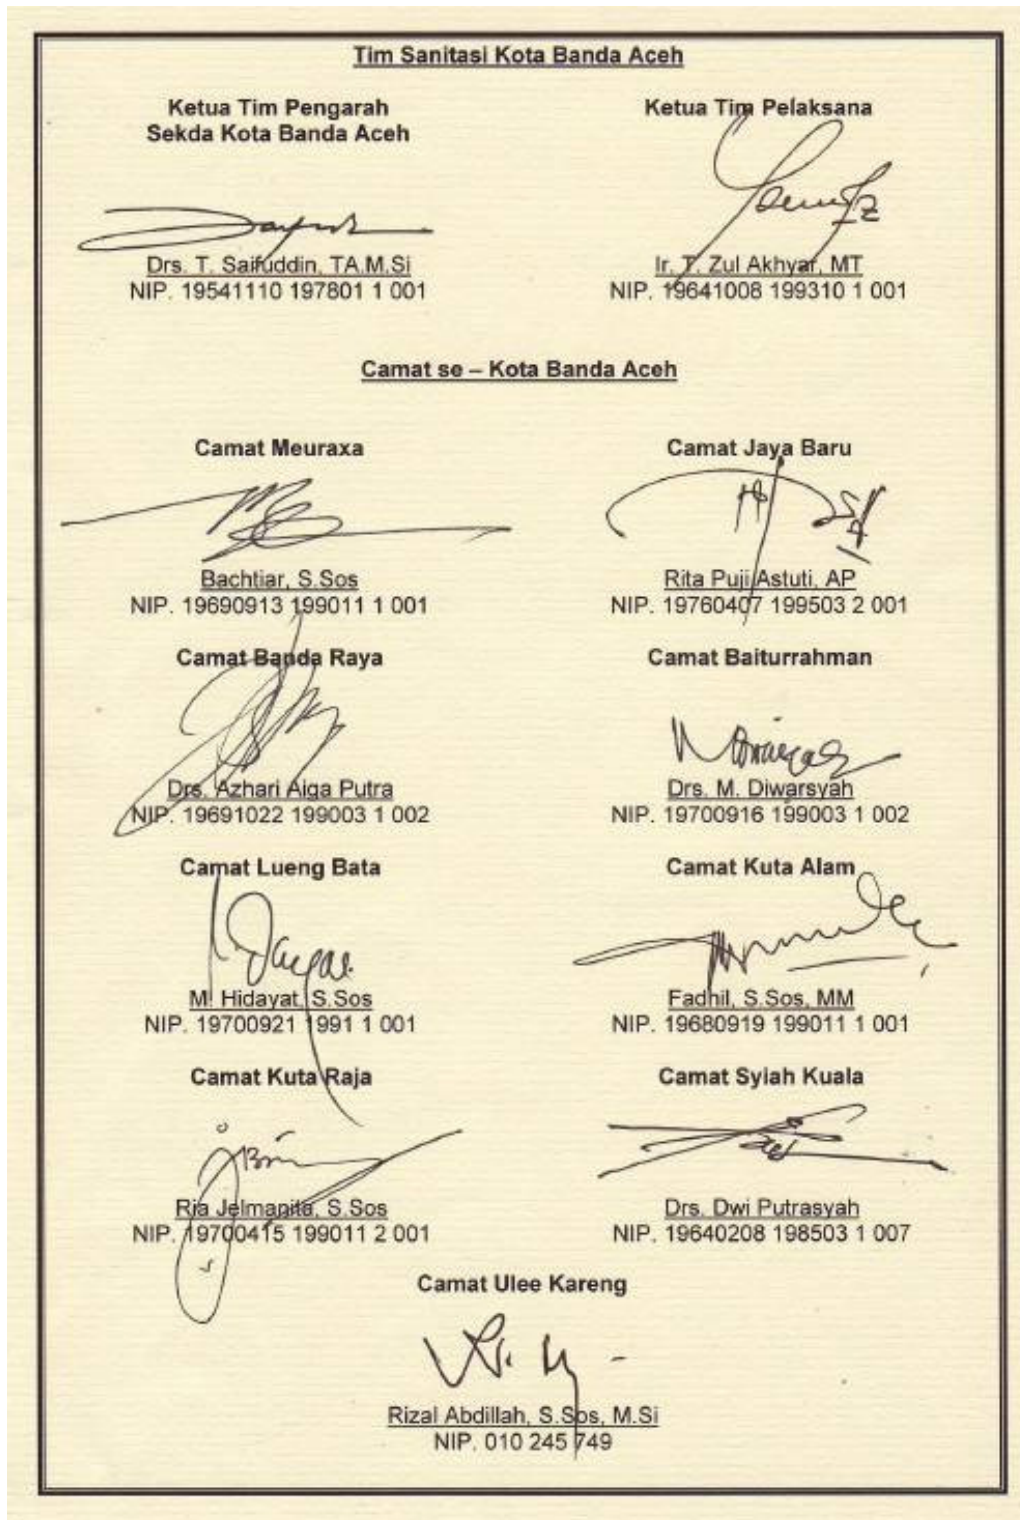 Tim Sanitasi Kota Banda Aceh
Ketua Tim Pengarah
Sekda Kota Banda Aceh
Drs. T. Saifuddin, TA.M.Si
NIP. 19541110 197801 1 001
Ketua Tim Pelaksana
Ir. T. Zul Akhyar, MT
NIP. 19641008 199310 1 001
Camat se – Kota Banda Aceh
Camat Meuraxa
Bachtiar, S.Sos
NIP. 19690913 199011 1 001
Camat Jaya Baru
Rita Puji Astuti, AP
NIP. 19760407 199503 2 001
Camat Banda Raya
Drs. Azhari Aiga Putra
NIP. 19691022 199003 1 002
Camat Baiturrahman
Drs. M. Diwarsyah
NIP. 19700916 199003 1 002
Camat Lueng Bata
M. Hidayat, S.Sos
NIP. 19700921 1991 1 001
Camat Kuta Alam
Fadhil, S.Sos, MM
NIP. 19680919 199011 1 001
Camat Kuta Raja
Ria Jelmanita, S.Sos
NIP. 19700415 199011 2 001
Camat Syiah Kuala
Drs. Dwi Putrasyah
NIP. 19640208 198503 1 007
Camat Ulee Kareng
Rizal Abdillah, S.Sos, M.Si
NIP. 010 245 749